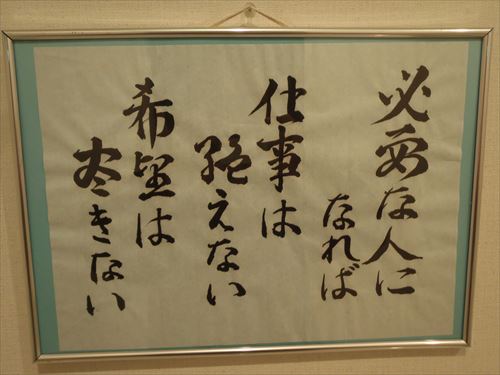 必要な人に
なれば
仕事は
絶えない
希望は
尽きない